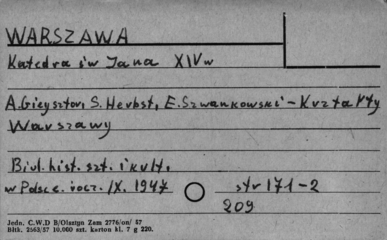 WARSZAWA
Katedra św Jana XIV w
A. Gieysztor, S. Herbst, E. Szwankowski – Kształty
Warszawy
Biul. hist. szt. i kult.
w Polsce. rocz. IX. 1947 str 171-2
209
Jedn. C.W.D B/Olsztyn Zam 2776/on/ 57
Bltk. 2563/57 10.000 szt. karton kl. 7 g 220.